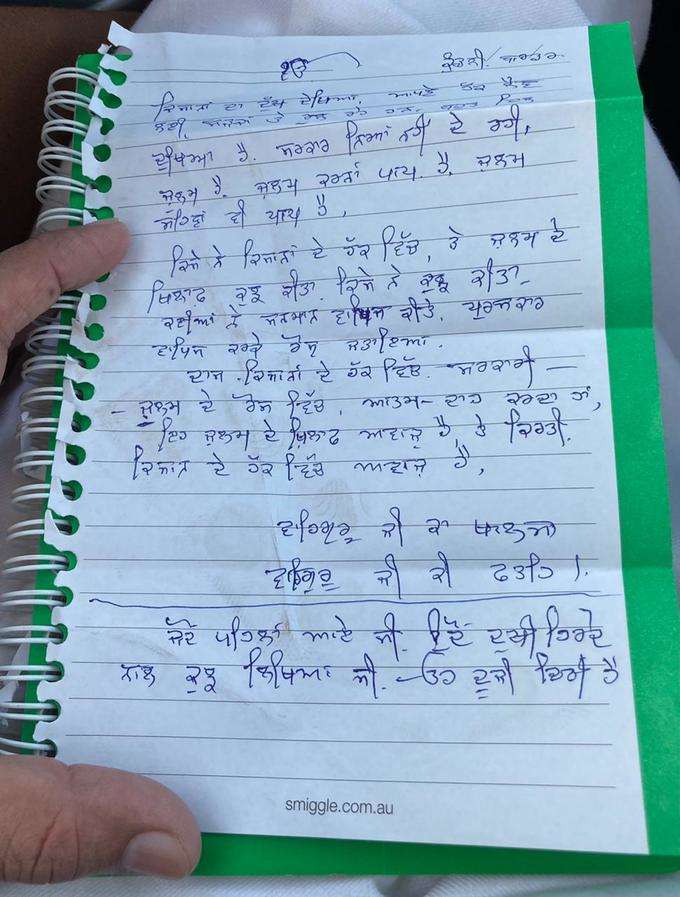 ੴ
ਕੁੰਡਲੀ ਬਾਰਡਰ
ਕਿਸਾਨਾਂ ਦਾ ਦੁੱਖ ਦੇਖਿਆ, ਆਪਣੇ ਹੱਕ ਲੈਣ
ਲਈ, ਸੜਕਾਂ ਤੇ ਰੁਲ ਰਹੇ ਹਨ. ਬਹੁਤ ਦਿਲ
ਦੁਖਿਆ ਹੈ. ਸਰਕਾਰ ਨਿਆਂ ਨਹੀਂ ਦੇ ਰਹੀ,
ਜ਼ੁਲਮ ਹੈ. ਜ਼ੁਲਮ ਕਰਨਾਂ ਪਾਪ. ਹੈ, ਜ਼ੁਲਮ
ਸਹਿਣਾਂ ਵੀ ਪਾਪ ਹੈ,
ਕਿਸੇ ਨੇ ਕਿਸਾਨਾਂ ਦੇ ਹੱਕ ਵਿੱਚ, ਤੇ ਜ਼ੁਲਮ ਦੇ
ਖਿਲਾਫ ਕੁਝ ਕੀਤਾ. ਕਿਸੇ ਨੇ ਕੁਝ ਕੀਤਾ_
ਕਈਆਂ ਨੇ ਸਨਮਾਨ ਵਾਪਿਸ ਕੀਤੇ, ਪੁਰਸਕਾਰ
ਵਾਪਿਸ ਕਰਕੇ ਰੋਸ ਜਤਾਇਆ.
ਦਾਸ. ਕਿਸਾਨਾਂ ਦੇ ਹੱਕ ਵਿੱਚ. ਸਰਕਾਰੀ —
– ਜ਼ੁਲਮ ਦੇ ਰੋਸ ਵਿੱਚ, ਆਤਮ-ਦਾਹ ਕਰਦਾ ਹਾਂ,
ਇਹ ਜ਼ੁਲਮ ਦੇ ਖ਼ਿਲਾਫ ਆਵਾਜ਼ ਹੈ, ਤੇ ਕਿਰਤੀ.
ਕਿਸਾਨ ਦੇ ਹੱਕ ਵਿੱਚ ਆਵਾਜ਼ ਹੈ,
ਵਾਹਿਗੁਰੂ ਜੀ ਕਾ ਖਾਲਸਾ
ਵਾਹਿਗੁਰੂ ਜੀ ਕੀ ਫਤਹਿ।.
ਜਦੋਂ ਪਹਿਲਾਂ ਆਏ ਸੀ. ਉਦੋਂ ਦੁਖੀ ਹਿਰਦੇ
ਨਾਲ ਕੁਝ ਲਿਖਿਆ ਸੀ.– ਉਹ ਦੂਜੀ ਹੈ
smiggle.com.au